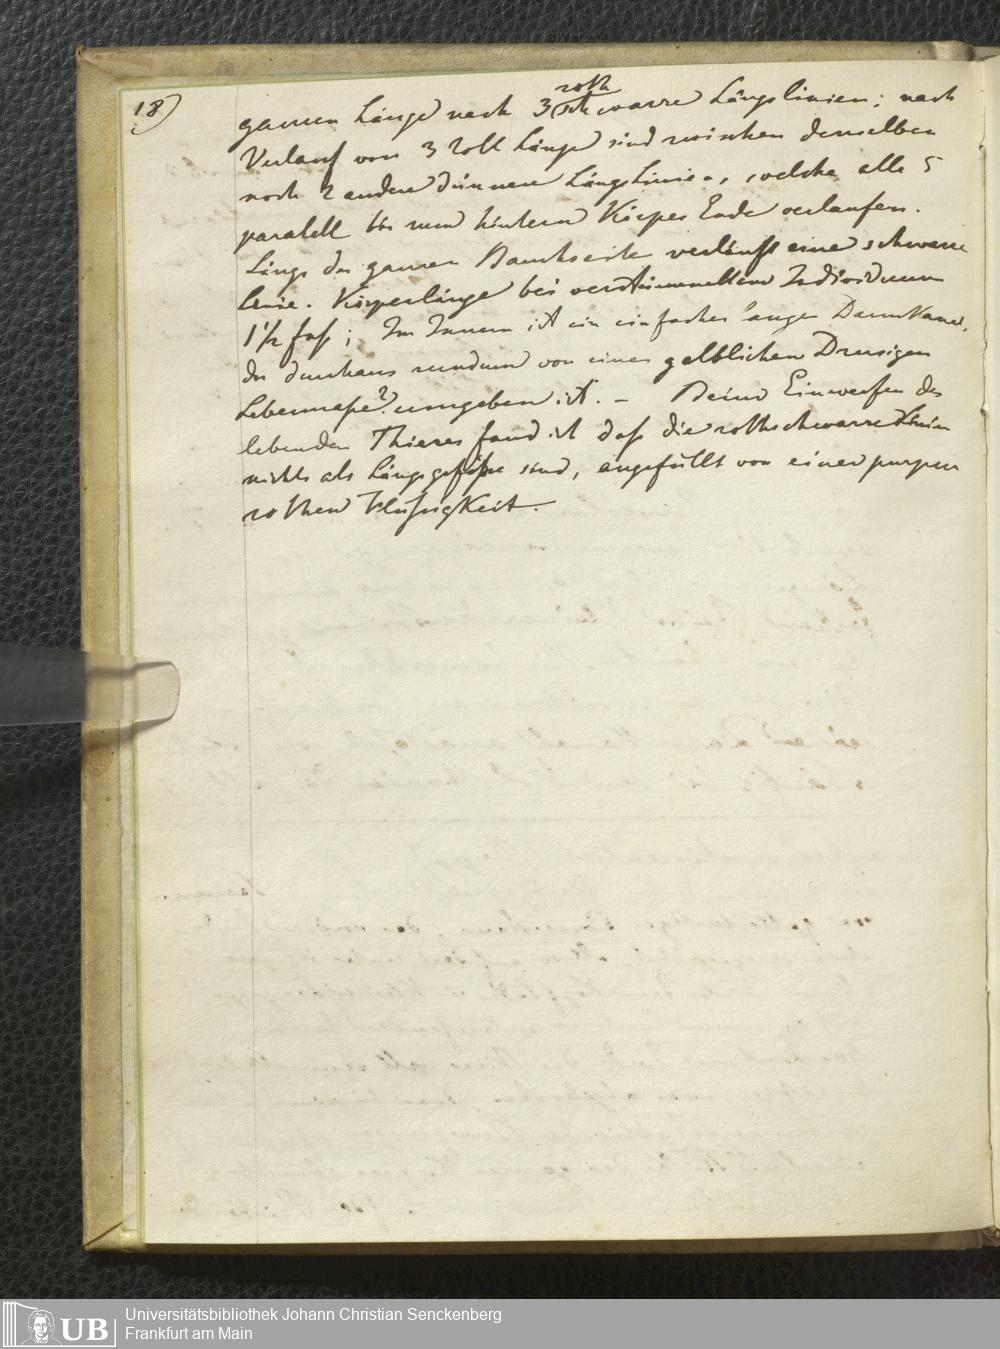 18)
roth
ganzen Länge nach 3 schwarze Längslinien; nach
Verlauf von 3 Zoll Länge sind zwischen denselben
noch 2 andere dünnere Längslinien, welche alle 5
paralell bis zum hintern Körper Ende verlaufen.
Längs der ganzen Bauchseite verläuft eine schwarze
Linie. Körperlänge bei verstümmeltem Individuum
1 1/2 fuß; Im Innern ist ein einfacher langer Darmkanal,
der durchaus rundum von einer gelblichen Drusigen
Lebermaße? umgeben ist. – Beim Einwerfen des
lebenden Thieres fand ich daß die rothschwarze Linien
nichts als Längsgefäße sind, angefüllt von einer purpur
rothen Flüßigkeit.
UB
Universitätsbibliothek Johann Christian Senckenberg
Frankfurt am Main